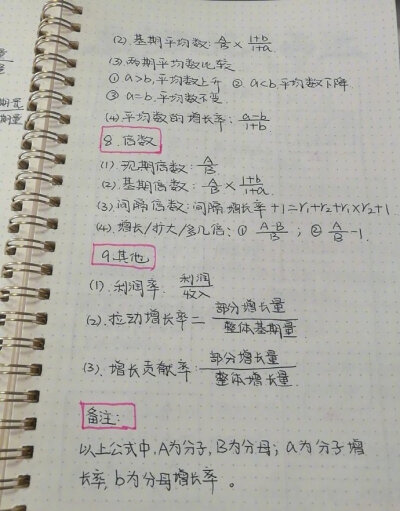 量
量
期量
期量
(2).基期平均数:A/B×(1+b)/(1+a)
(3).两期平均数比较
① a>b,平均数上升 ② a<b.平均数下降
③ a=b.平均数不变.
(4).平均数的增长率:(a-b)/(1+b)
8.倍数
(1).现期倍数:A/B
(2).基期倍数:A/B×(1+b)/(1+a)
(3).间隔倍数:间隔增长率+1=r₁+r₂+r₁×r₂+1
(4).增长/扩大/多几倍:① (A-B)/B;② A/B-1.
9.其他
(1).利润率:利润/收入
(2).拉动增长率=部分增长量/整体基期量
(3).增长贡献率:部分增长量/整体增长量
备注:
以上公式中,A为分子,B为分母;a为分子增
长率,b为分母增长率。